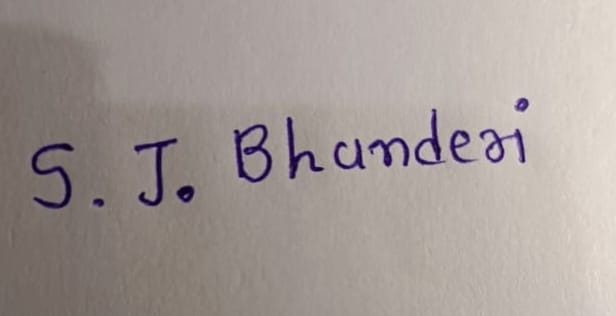 S. J. Bhanderi